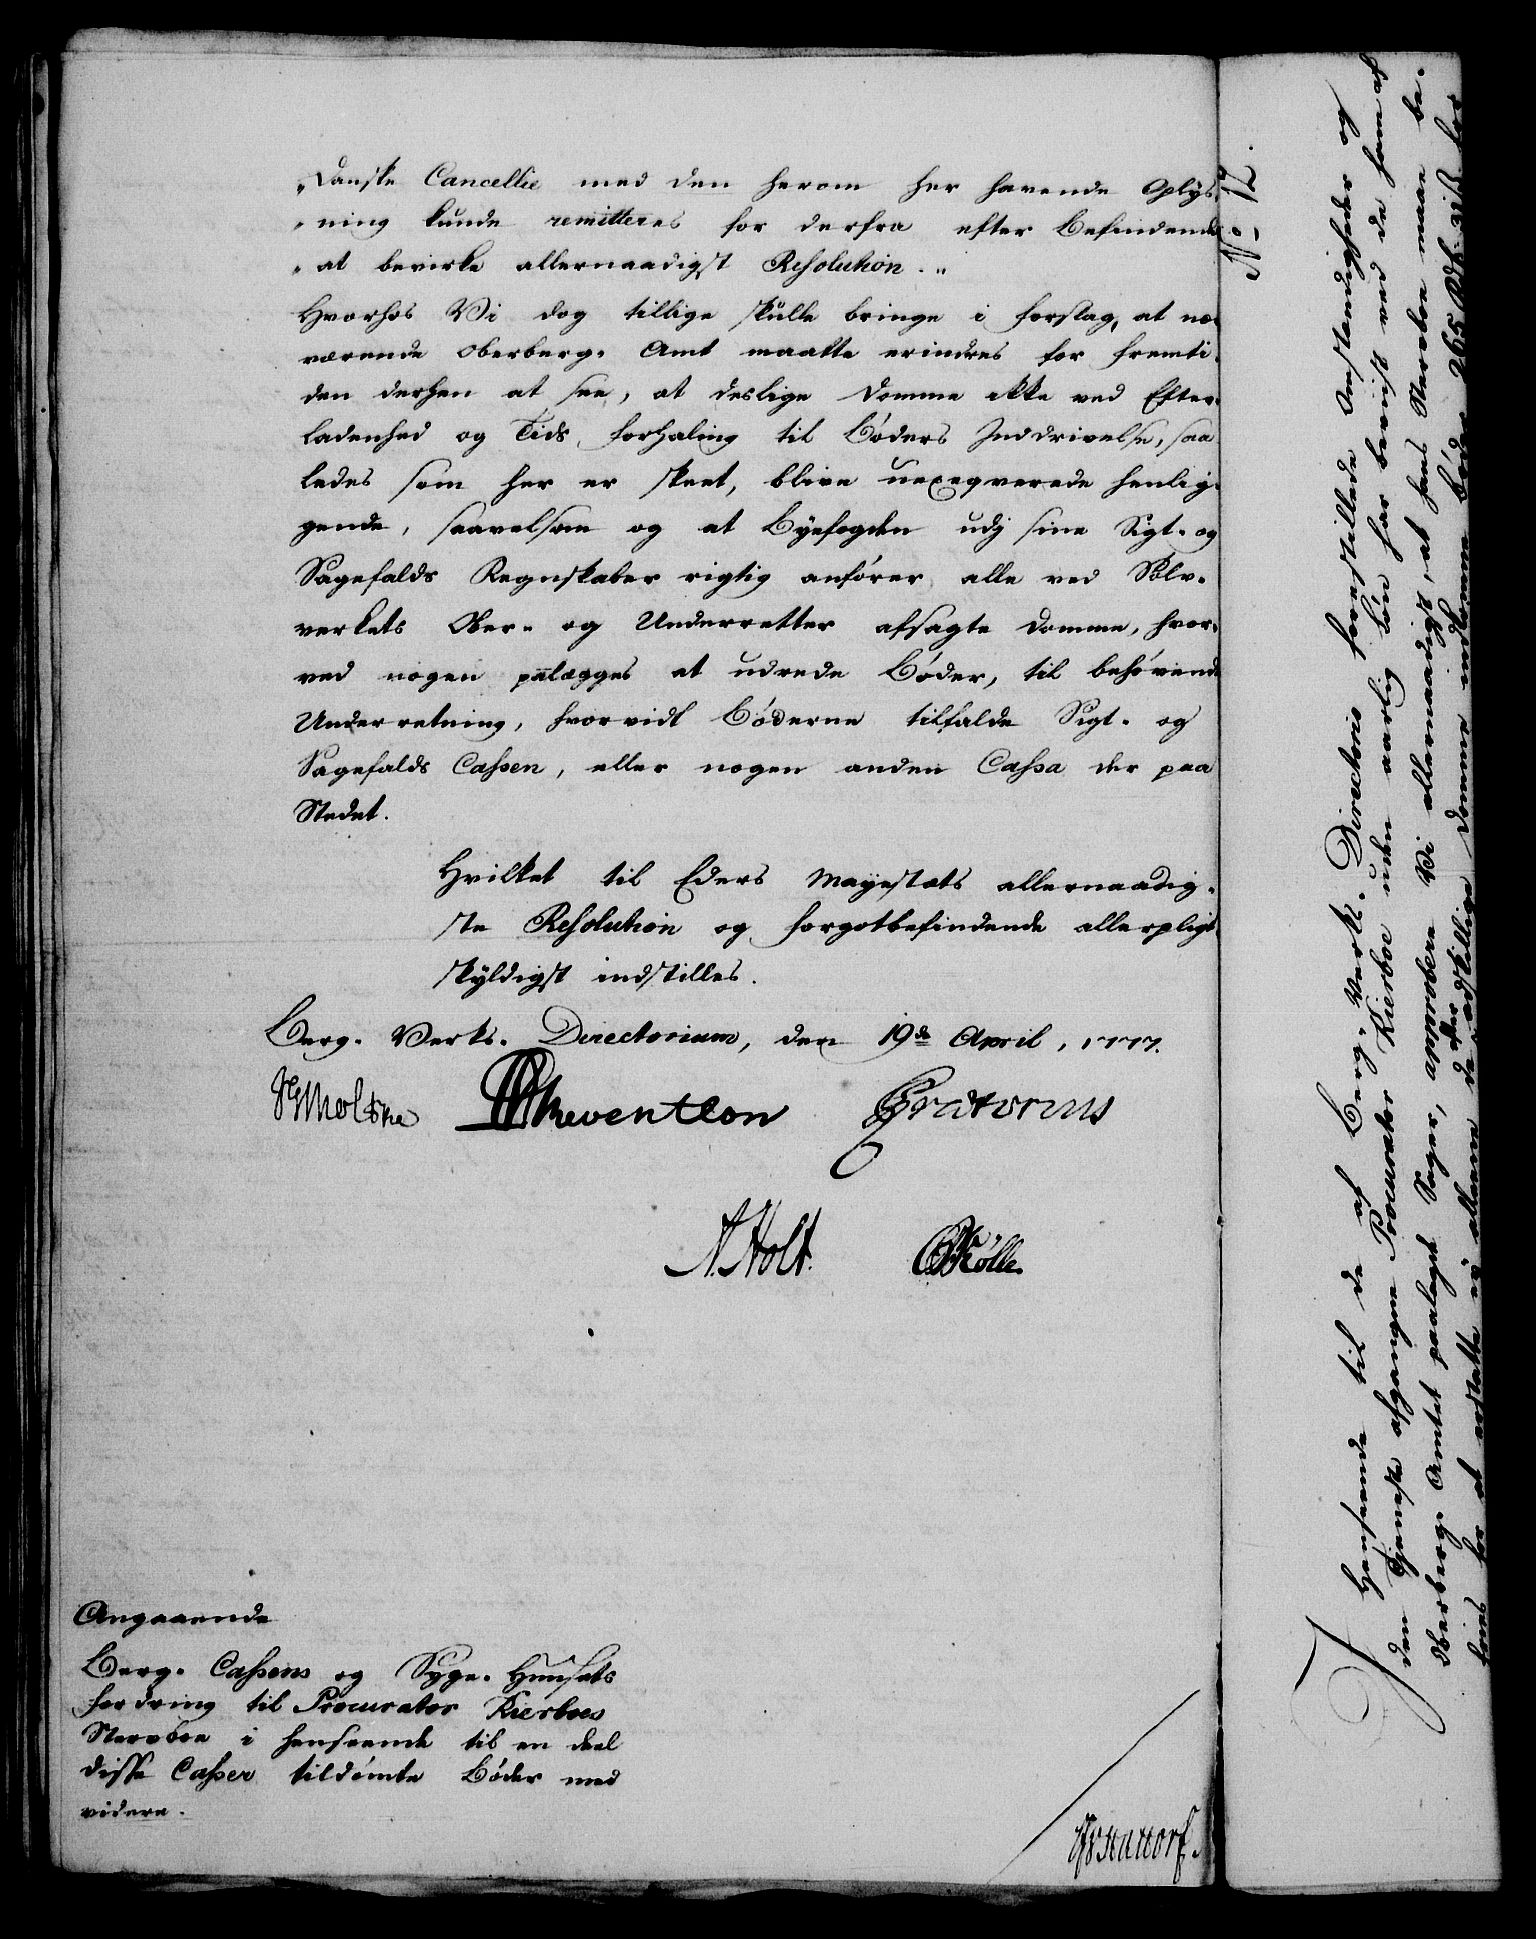 „Danske Cancellie med den herom her havende Oplys-
„ning kunde remitteres for derfra efter Befindende
„at bevirke allernaadigst Resolution.„
Hvorhos Vi dog tillige skulle bringe i forslag, at næ-
værende Oberberg-Amt maatte erindres for fremti-
den derhen at see, at deslige Domme ikke ved Efter-
ladenhed og Tids forhaling til Bøders Inddrivelse, saa-
ledes som her er skeet, blive uexeqverede henlig-
gende, saavelsom og at Byefogden udj sine Sigt- og
Sagefalds Regnskaber rigtig anfører alle ved Sølv-
verkets Ober- og Underretter afsagte Domme, hvor-
ved nogen pålægges at udrede Bøder, til behøvende
Underretning, hvorvidt Bøderne tilfalde Sigt- og
Sagefalds Cassen, eller nogen anden Cassa der paa
Stedet.
Hvilket til Eders Mayestæts allernaadig-
ste Resolution og forgotbefindende allerpligt
skyldigst indstilles.
Berg-Verks-Directorium, den 19de April, 1777.
Moltke Reventlow Prætorius
N. Holt. Kölle
Angaaende
Berg-Cassens og Syge-Huusets
fordring til Procurator Kierboes
Stervboe i henseende til en deel
disse Casser tildømte Bøder med
videre.
No. 12.
I Henseende til de af Berg-Verks-Directorio forestillede Omstændigheder og
den Tjeneste afgangne Procurator Kierboe uden aarlig Løn har beviist ved de ham af
Oberberg-Amtet paalagde Sager, approbere Vi allernaadigst, at hans Stervboe maae be-
fries for at erstatte ey alleene de efter adskillige Domme inddømme Bøder 265 Rdr. 31 ß. for